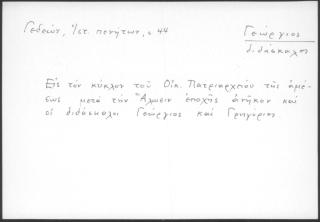 Γεδεών, Ἱστ. πενήτων, σ 44
Γεώργιος
διδάσκαλος
Εἰς τὸν κύκλον τοῦ Οἰκ. Πατριαρχείου τῆς ἀμέ-
σως μετὰ τὴν Ἅλωσιν ἐποχῆς ἀνῆκον καὶ
οἱ διδάσκαλοι Γεώργιος καὶ Γρηγόριος